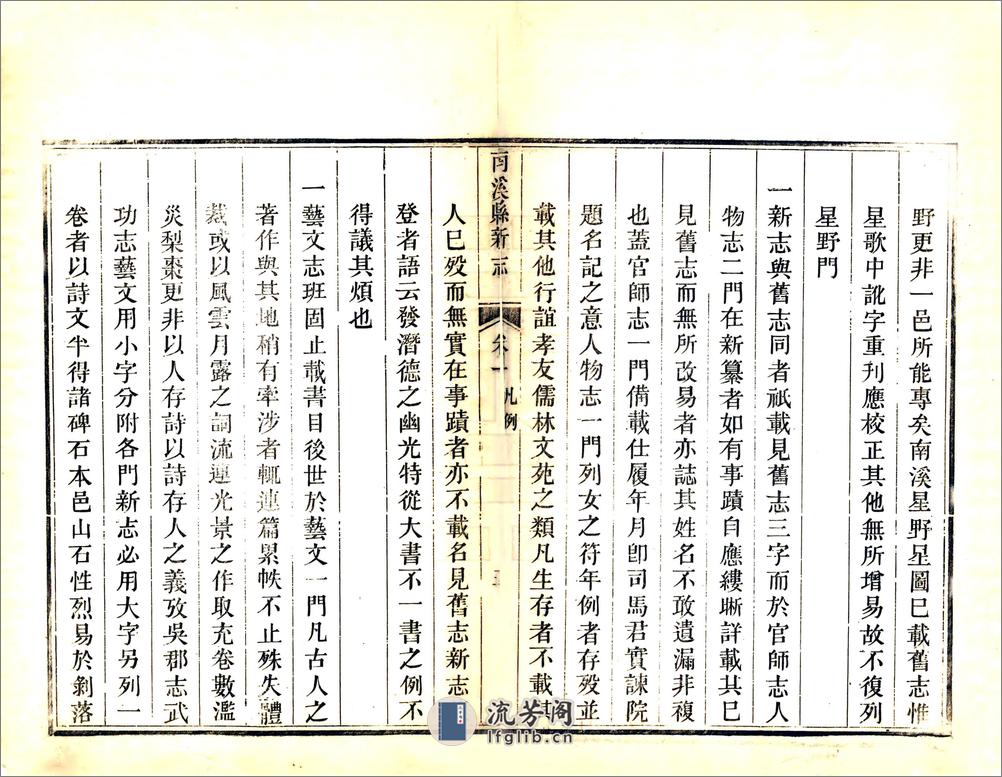 野更非一邑所能專矣南溪星野星圖已載舊志惟
星歌中訛字重刊應校正其他無所增易故不復列
星野門
一新志與舊志同者祇載見舊志三字而於官師志人
物志二門在新纂者如有事蹟自應縷晰詳載其已
見舊志而無所改易者亦誌其姓名不敢遺漏非複
也蓋官師志一門備載仕履年月卽司馬君實諫院
題名記之意人物志一門列女之符年例者存歿並
載其他行誼孝友儒林文苑之類凡生存者不載其
南溪縣新志
卷一
凡例
三
人已歿而無實在事蹟者亦不載名見舊志新志
登者語云發潛德之幽光特從大書不一書之例不
得議其煩也
一藝文志班固止載書目後世於藝文一門凡古人之
著作與其地稍有牽涉者輒連篇累帙不止殊失體
裁或以風雲月露之詞流連光景之作取充卷數濫
災梨棗更非以人存詩以詩存人之義攷吳郡志武
功志藝文用小字分附各門新志必用大字另列一
卷者以詩文半得諸碑石本邑山石性烈易於剝落
流芳阁
lfglib.cn